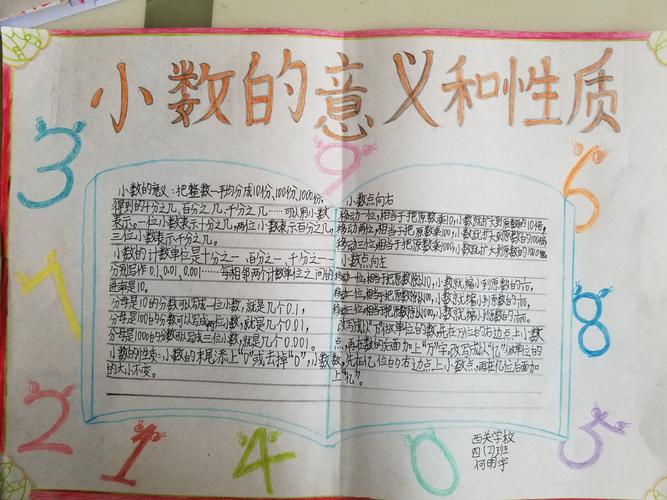 小数的意义和性质
小数的意义：把整数一平均分成10份、100份、1000份，
得到的十分之几、百分之几、千分之几……可以用小数
表示。一位小数表示十分之几，两位小数表示百分之几，
三位小数表示千分之几。
小数的计数单位是十分之一、百分之一、千分之一……
分别写作0.1、0.01、0.001……每相邻两个计数单位之间的
进率是10。
分母是10的分数可以写成一位小数，就是几个0.1，
分母是100的分数可以写成两位小数，就是几个0.01，
分母是1000的分数可以写成三位小数，就是几个0.001。
小数的性质：小数的末尾添上"0"或去掉"0"，小数
的大小不变。
小数点向右
移动一位，相当于把原数乘10，小数就扩大到原数的10倍，
移动两位，相当于把原数乘100，小数就扩大到原数的100倍
移动三位，相当于把原数乘1000，小数就扩大到原数的1000倍
小数点向左
移动一位，相当于把原数除以10，小数就缩小到原数的
移动一位，相当于把原数除以100，小数就缩小到原数的
移动一位，相当于把原数除以1000，小数就缩小到原数的
改写成以"万"做单位的数，先在万位的右边点上小数
点，再在数的后面加上"万"字，改写成以"亿"做单位的
数，先在亿位的右边点上小数点，再在亿位后面加
上"亿"。
3
9
6
7
8
2
1
4
0
5
西关学校
四(2)班
何明宇